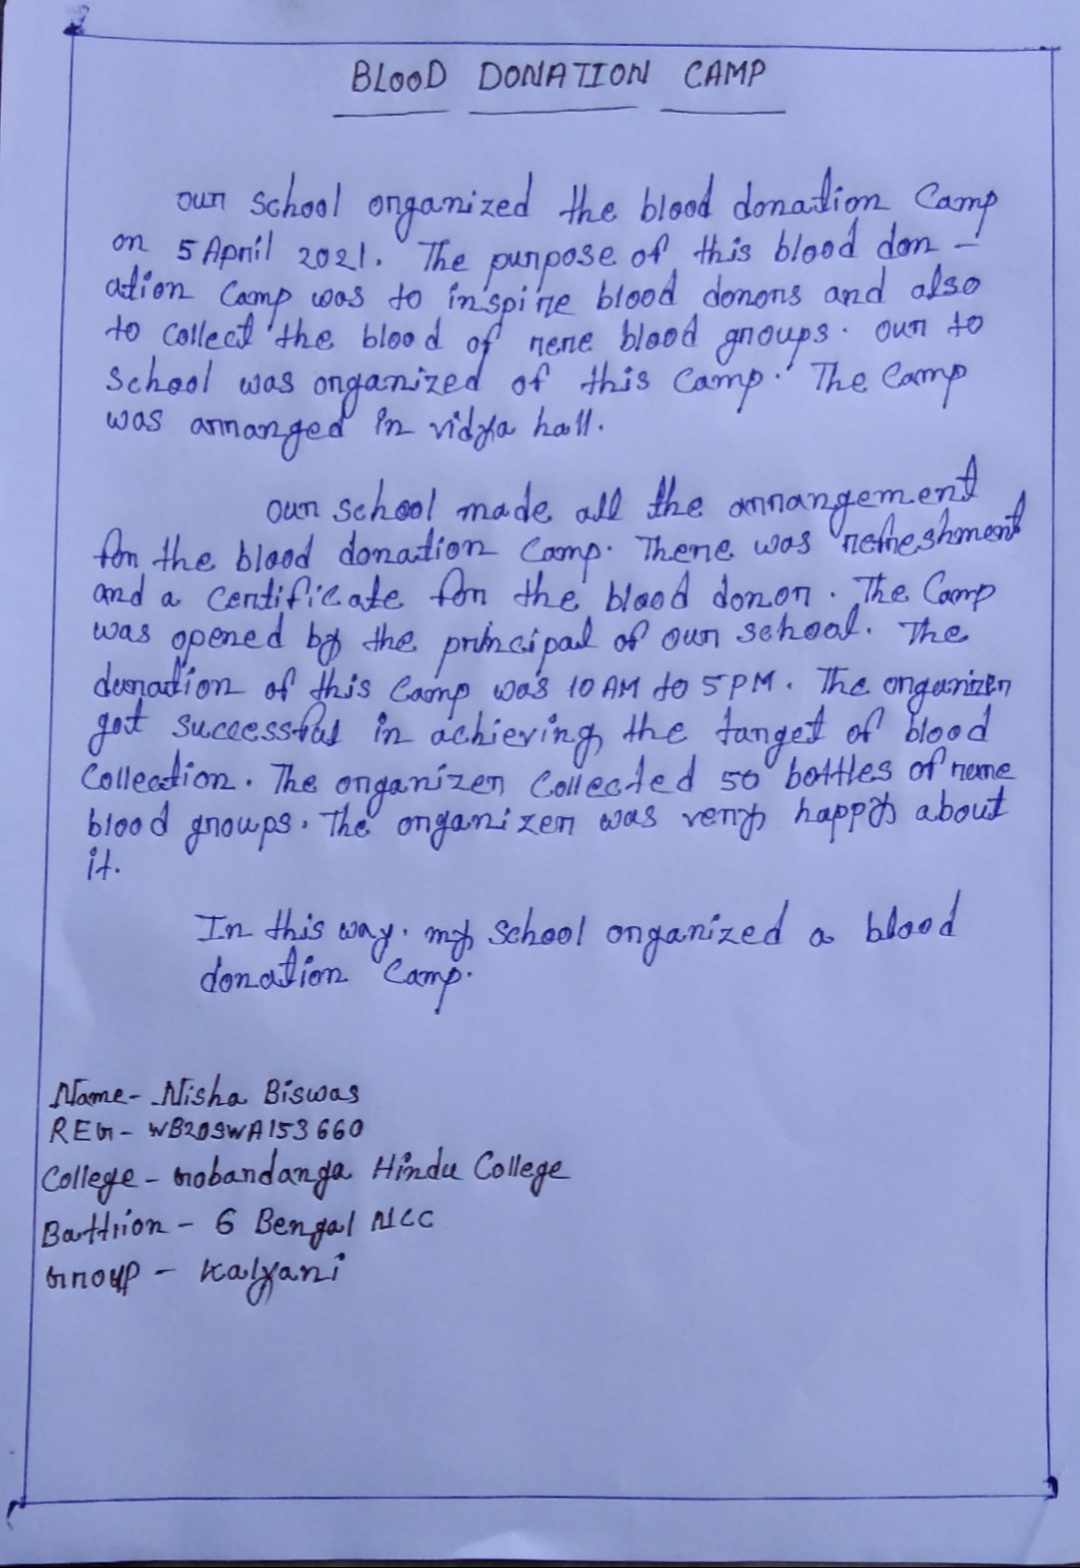 BLOOD DONATION CAMP
our school organized the blood donation Camp
on 5 April 2021. The purpose of this blood don -
ation Camp was to inspire blood donors and also
to collect the blood of rere blood groups. our to
School was organized of this Camp. The Camp
was arranged in vidya hall.
our school made all the arrangement
for the blood donation Camp. There was refreshment
and a certificate for the blood donor. The Camp
was opened by the principal of our school. The
duration of this Camp was 10 AM to 5 PM. The organizer
got successful in achieving the target of blood
Collection. The organizer Collected 50 bottles of rere
blood groups. The organizer was very happy about
it.
In this way. my school organized a blood
donation Camp.
Name- Nisha Biswas
REG- WB20SWA153660
College - Gobardanga Hindu College
Battlion - 6 Bengal NCC
Group - Kalyani